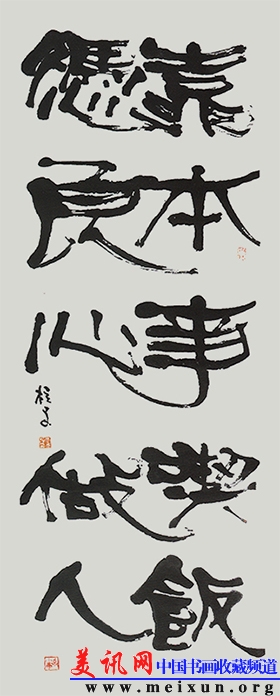 靠本事喫飯
憑良心做人
美讯网 中国书画收藏频道
www.meixun.org